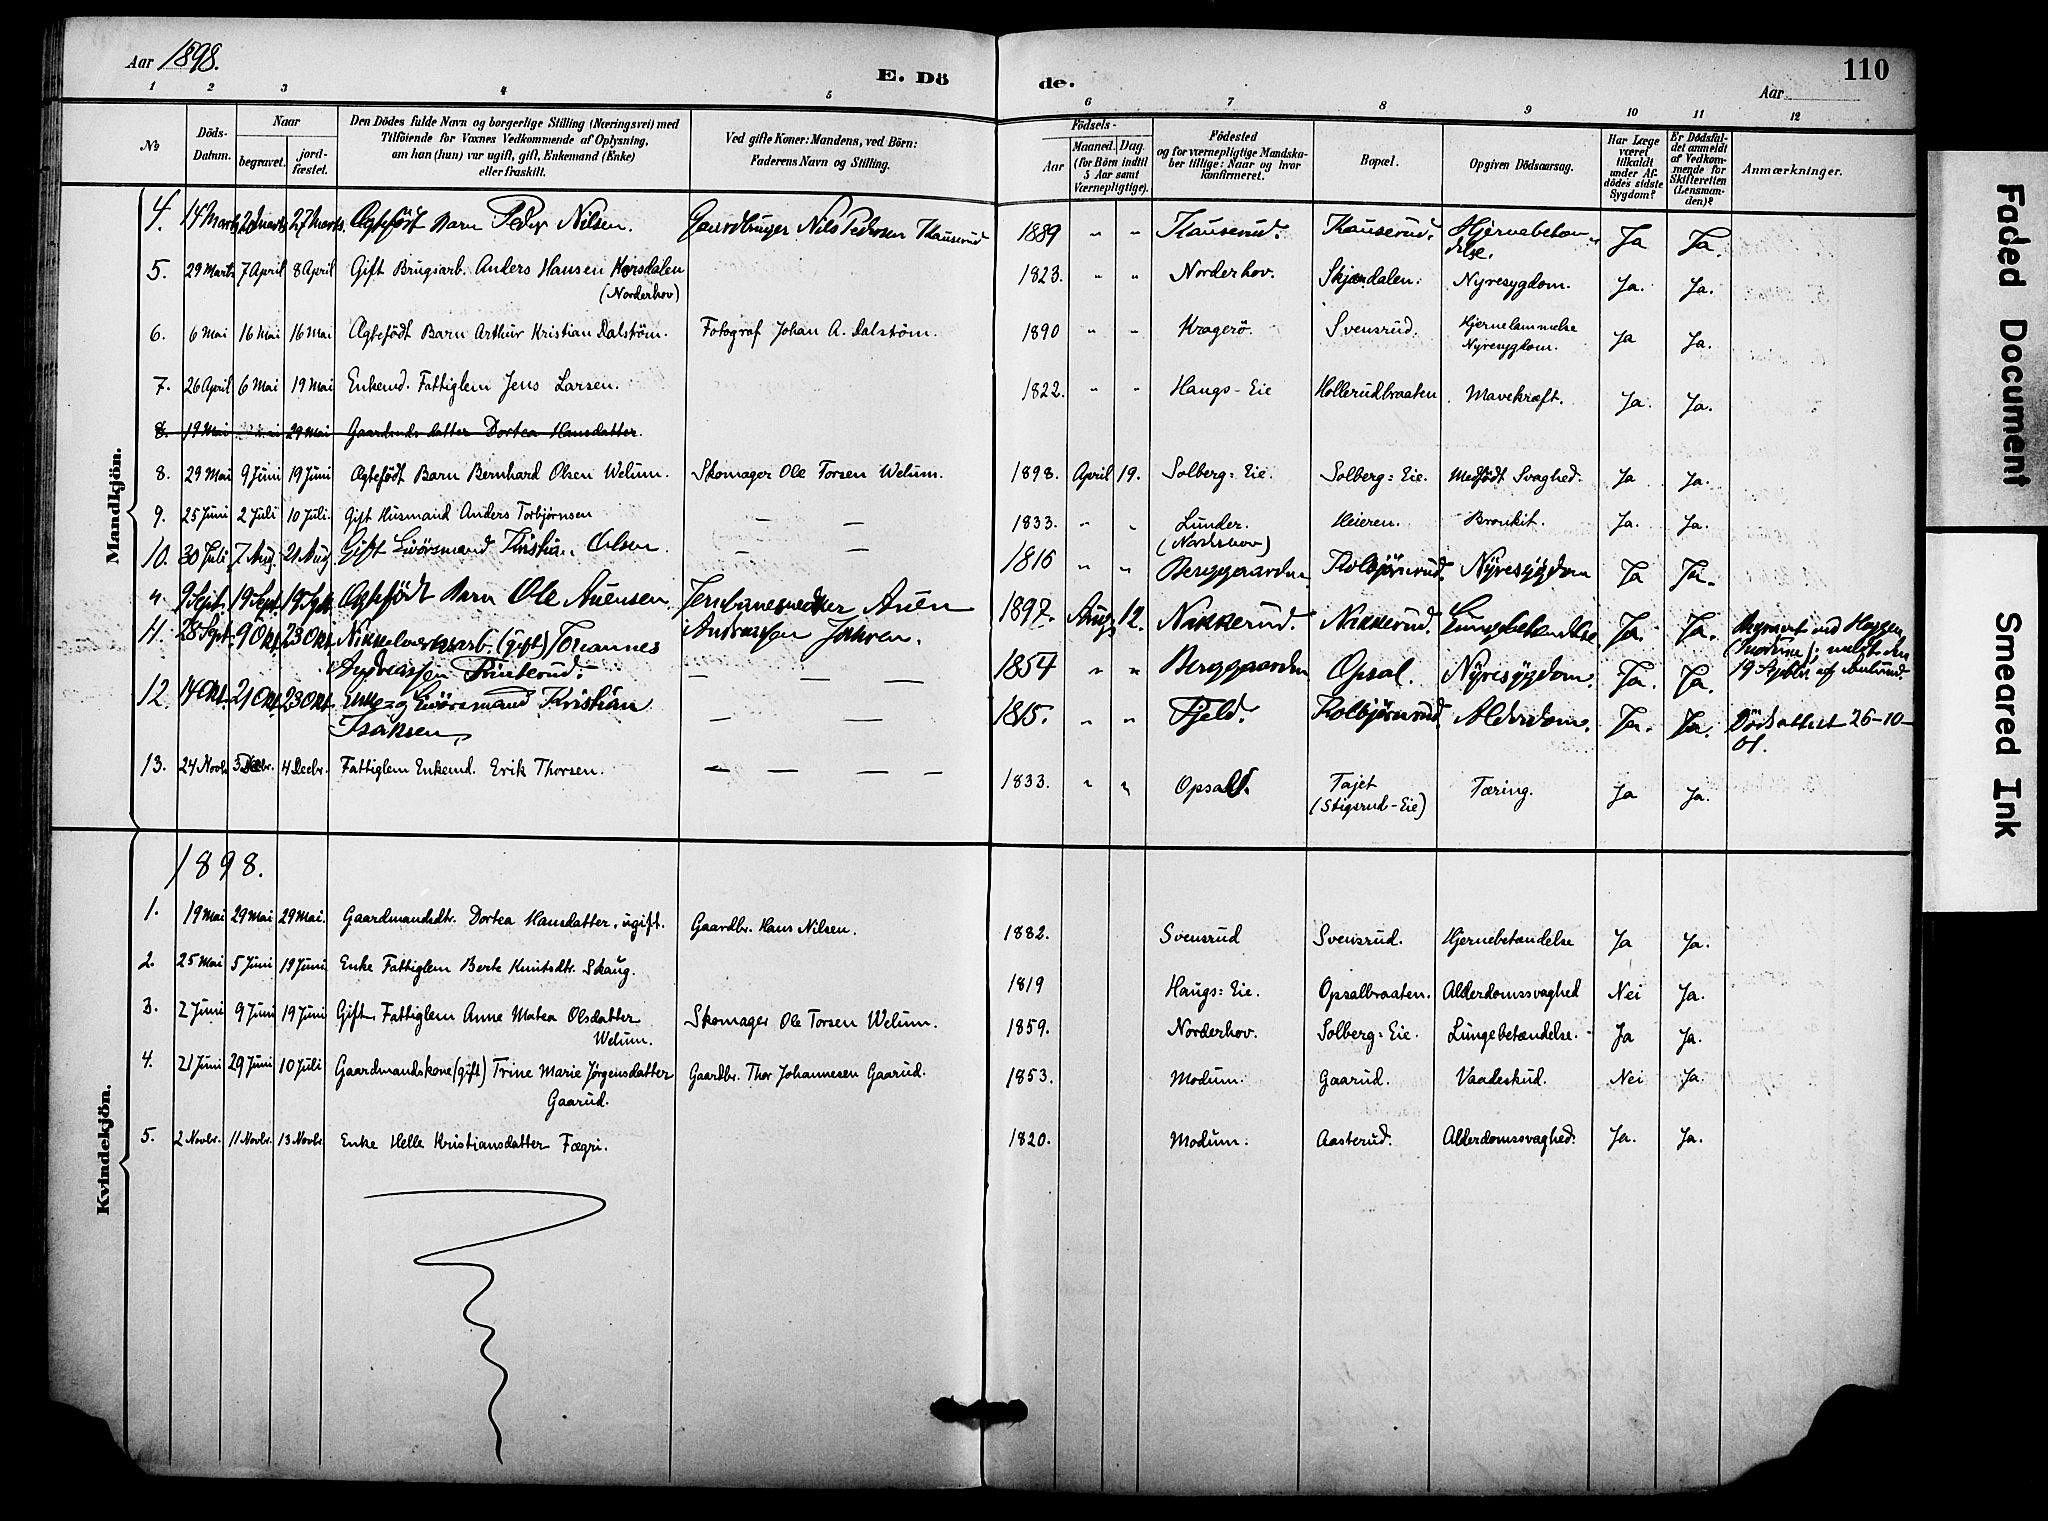 Aar 1898.
E. Dö
de.
Aar
110
1 2 3 4 5 6 7 8 9 10 11 12
№
Döds-Datum.
Naar
begravet.
jord-fæstet.
Den Dödes fulde Navn og borgerlige Stilling (Næringsvei) med
Tilföiende for Voxnes Vedkommende af Oplysning,
om han (hun) var ugift, gift, Enkemand (Enke)
eller fraskilt.
Ved gifte Koner: Mandens, ved Börn:
Faderens Navn og Stilling.
Födsels-
Aar
Maaned. Dag.
(for Börn indtil
5 Aar samt
Værnepligtige).
Födested
og for værnepligtige Mandska-
ber tillige: Naar og hvor
konfirmeret.
Bopæl.
Opgiven Dödsaarsag.
Har Læge
været
tilkaldt
under Af-
dödes sidste
Sygdom?
Er Dödsfal-
det anmeldt
af Vedkom-
mende for
Skifteretten
(Lensman-
den)?
Anmærkninger.
Mandkjön.
4. 14 Marts 27 Marts. Ægtefödt Barn Peder Nilsen. Gaardbruger Nils Pedersen Klauserud 1889 " " Klauserud. Klauserud. Hjernebetæn-
delse. Ja Ja.
5. 29 Marts 7 April 8 April Gift Brugsarb. Anders Hansen Korsdalen 1823. " " Norderhov. Skjærdalen: Nyresygdom. Ja. Ja.
(Norderhov)
6. 6 Mai 16 Mai 16 Mai Ægtefödt Barn Arthur Kristian Dalström. Fotograf Johan A. Dalström. 1890 " " Kragerö. Svensrud. Hjernelammelse
Nyresygdom. Ja Ja.
7. 26 April 6 Mai 19 Mai Enkemd. Fattiglem Jens Larsen. 1822. " " Haugs-Eie Hollerudbraaten Mavekræft. Ja. Ja.
8. 19 Mai 29 Mai datter Dortea Hansdatter.
8. 29 Mai 9 Juni 19 Juni Ægtefödt Barn Bernhard Olsen Welum. Skomager Ole Torsen Welum. 1898. April 19. Solberg=Eie. Solberg=Eie. Medfödt Svaghed. Ja Ja.
9. 25 Juni 2 Juli 10 Juli. Gift Husmand Anders Torbjørnsen — — 1833. " " Lunder. Heieren. Bronkit. Ja. Ja.
10. 30 Juli 7 Aug. 21 Aug Gift Livörsmand Kristian Olsen. — — 1816 " " Berggaarden. Kolbjörnrud. Nyresygdom Ja Ja.
9 Sept. 19 Sept. 19 Sept. Ægtefödt Barn Ole Auensen. Auen 1897. Aug 12. Nikkerud. Nikkerud. Lungebetændelse Ja. Ja.
Andreassen
11. 28 Sept. 9 Okt. 23 Okt. Nikkelverksarb. (gift) Johannes
Andreassen — — — 1854 " " Berggaarden Opsal. Nyresygdom. Ja. Ja.
12. 14 Okt. 21 Okt. 23 Okt. Livörsmand Kristian
Isaksen. — — 1815. " " Fjeld. Kolbjørnrud. Alderdom. Ja. Ja. Dödsattest 26-10-
01.
13. 24 Novbr. 4 Decbr. Fattiglem Enkemd. Erik Thorsen. — — — — 1833. " " Opsal. Tajet
(Stigsrud-Eie) Tæring. Ja Ja.
Kvindekjön.
1898.
1. 19 Mai 29 Mai 29 Mai. Gaardmandsdtr. Dortea Hansdatter, ugift. Gaardbr. Hans Nilsen. 1882. Svensrud Svensrud. Hjernebetændelse Ja Ja.
2. 25 Mai 5 Juni 19 Juni Enke Fattiglem Berte Knutsdtr. Skaug. 1819 Haugs=Eie. Opsalbraaten. Alderdomssvaghed Nei Ja.
3. 2 Juni 9 Juni 19 Juni Gift Fattiglem Anne Matea Olsdatter
Welum. Skomager Ole Torsen Welum. 1859. Norderhov. Solberg=Eie. Lungebetændelse. Ja Ja.
4. 21 Juni 29 Juni 10 Juli Gaardmandskone (gift) Trine Marie Jørgensdatter
Gaarud. Gaardbr. Thor Johannesen Gaarud. 1853. Modum. Gaarud. Vaadeskud. Nei Ja.
5. 2 Novbr. 11 Novbr. 13 Novbr Enke Helle Kristiansdatter Fægri. 1820. Modum. Aasterud. Alderdomssvaghed. Ja. Ja.
Faded Document
Smeared Ink